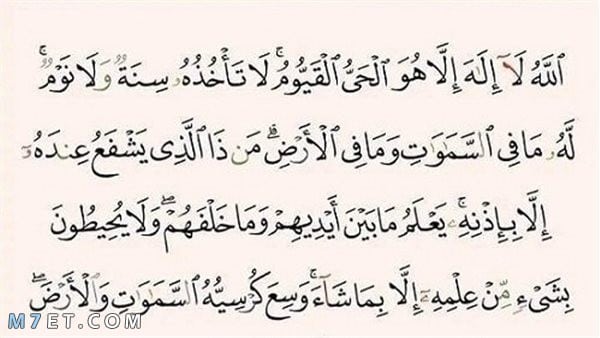 ٱللَّهُ لَآ إِلَٰهَ إِلَّا هُوَ ٱلْحَىُّ ٱلْقَيُّومُ ۚ لَا تَأْخُذُهُۥ سِنَةٌ وَلَا نَوْمٌ ۚ
لَّهُۥ مَا فِى ٱلسَّمَٰوَٰتِ وَمَا فِى ٱلْأَرْضِ ۗ مَن ذَا ٱلَّذِى يَشْفَعُ عِندَهُۥٓ
إِلَّا بِإِذْنِهِۦ ۚ يَعْلَمُ مَا بَيْنَ أَيْدِيهِمْ وَمَا خَلْفَهُمْ ۖ وَلَا يُحِيطُونَ
بِشَىْءٍ مِّنْ عِلْمِهِۦٓ إِلَّا بِمَا شَآءَ ۚ وَسِعَ كُرْسِيُّهُ ٱلسَّمَٰوَٰتِ وَٱلْأَرْضَ ۖ
M7ET.COM